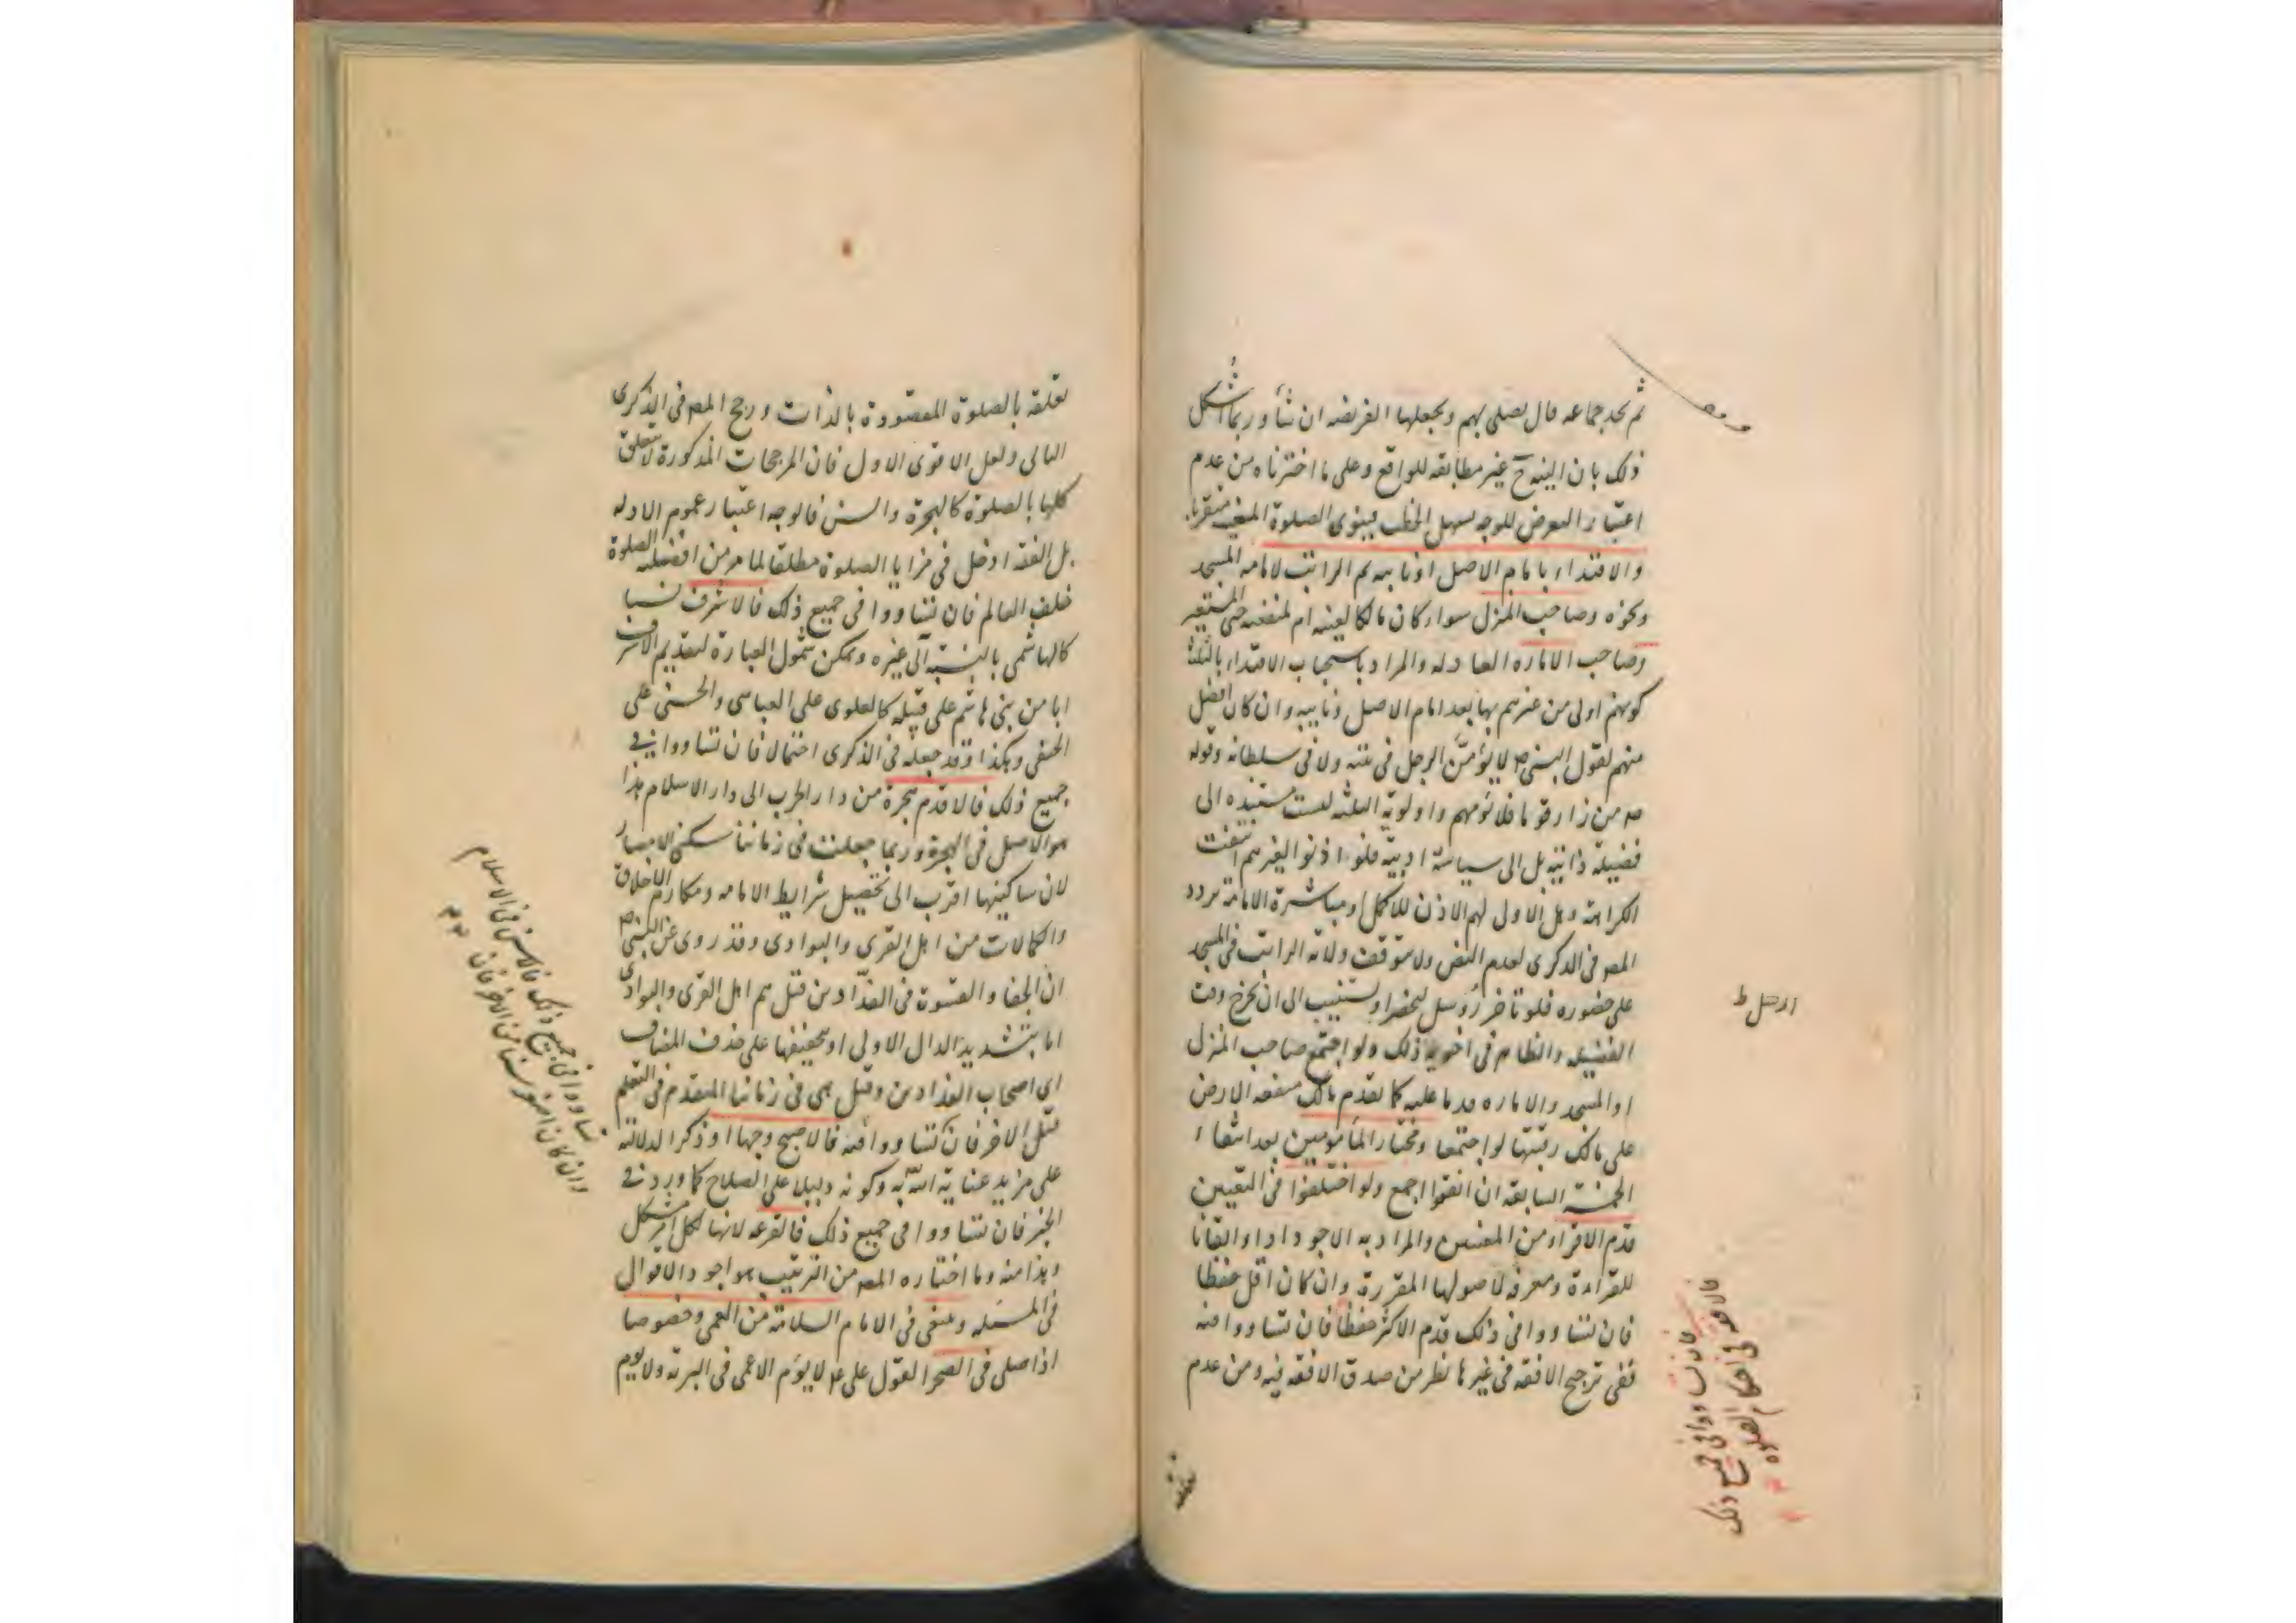 ثم يجد جماعه قال يصلى بهم ويجعلها الفريضه ان شأ وربما اشكل
ذلك بان النيه ح غير مطابقه للواقع وعلى ما اخترناه من عدم
اعتبار التعرض للوجه يسهل الخطب فينوى الصلوة المعينه متقربا
والاقتداء بامام الاصل او نايبه ثم الراتب لامامه المسجد
ونحوه وصاحب المنزل سواء كان مالكا لعينه ام لمنفعته حتى المستعير
وصاحب الاماره العادله والمراد باستحباب الاقتداء بالثلثة
كونهم اولى من غيرهم بها بعد امام الاصل ونايبه وان كان افضل
منهم لقول النبى ص لا يؤمّنّ الرجل فى بيته ولا فى سلطانه وقوله
ص من زار قوما فلا يؤمهم واولوية الثلثه ليست مستنده الى
فضيلة ذاتية بل الى سياسة ادبية فلو اذنوا لغيرهم انتفت
الكراهة وهل الاولى لهم الاذن للاكمل او مباشرة الامامة تردد
المص فى الذكرى لعدم النص ولا يتوقف ولاية الراتب فى المسجد
على حضوره فلو تاخر رُوسل ليحضر او يستنيب الى ان يخرج وقت
الفضيله والظاهر فى اخويه ذلك ولو اجتمع صاحب المنزل
او المسجد والاماره قدما عليه كما يقدم مالك منفعه الارض
على مالك رقبتها لو اجتمعا ومختار المأمومين بعد انتفاء
الخمسة السابقه ان اتفقوا اجمع ولو اختلفوا فى التعيين
قدم الاقراء من المعينين والمراد به الاجود اداء واتقانا
للقراءة ومعرفه لاصولها المقررة وان كان اقل حفظا
فان تساووا فى ذلك قدم الاكثر حفظا فان تساووا فيه
ففى ترجيح الافقه فى غيرها نظر من صدق الافقه فيه ومن عدم
الاصل ط
فان تساووا فى جميع ذلك
فالافقه فى احكام الصلوة
تعلقه بالصلوة المقصودة بالذات ورجح المص فى الذكرى
الثانى ولعل الاقوى الاول فان المرجحات المذكورة لا تتعلق
كلها بالصلوة كالهجرة والسن فالوجه اعتبار عموم الادله
بل الفقه ادخل فى مزايا الصلوة مطلقا لما مر من افضليه الصلوة
خلف العالم فان تساووا فى جميع ذلك فالاشرف نسبا
كالهاشمى بالنسبة الى غيره ويمكن شمول العبارة لتقديم الاشرف
ابا من بنى هاشم على قبيله كالعلوى على العباسى والحسنى على
الحنفى وهكذا وقد جعله فى الذكرى احتمالا فان تساووا فى
جميع ذلك فالاقدم هجرة من دار الحرب الى دار الاسلام هذا
هو الاصل فى الهجرة وربما جعلت فى زماننا سكنى الامصار
لان ساكنيها اقرب الى تحصيل شرايط الامامه ومكارم الاخلاق
والكمالات من اهل القرى والبوادى وقد روى عن النبى ص
ان الجفاء والقسوة فى الفدّادين قيل هم اهل القرى والبوادى
اما بتشديد الدال الاولى او تخفيفها على حذف المضاف
اى اصحاب الفدادين وقيل هى فى زماننا المتقدم فى التعلم
قبل الاخر فان تساووا فيه فالاصبح وجها او ذكرا لدلالته
على مزيد عناية الله به وكونه دليلا على الصلاح كما ورد فى
الخبر فان تساووا فى جميع ذلك فالقرعه لانها لكل امر مشكل
وهذا منه وما اختاره المص من الترتيب هو اجود الاقوال
فى المسئله وينبغى فى الامام السلامة من العمى وخصوصا
اذا صلى فى الصحرا لقول على ع لا يؤم الاعمى فى البرية ولا يوم
تساووا فى جميع ذلك فالاسن فى الاسلام
وان كان اصغر سنا من الاخر فان